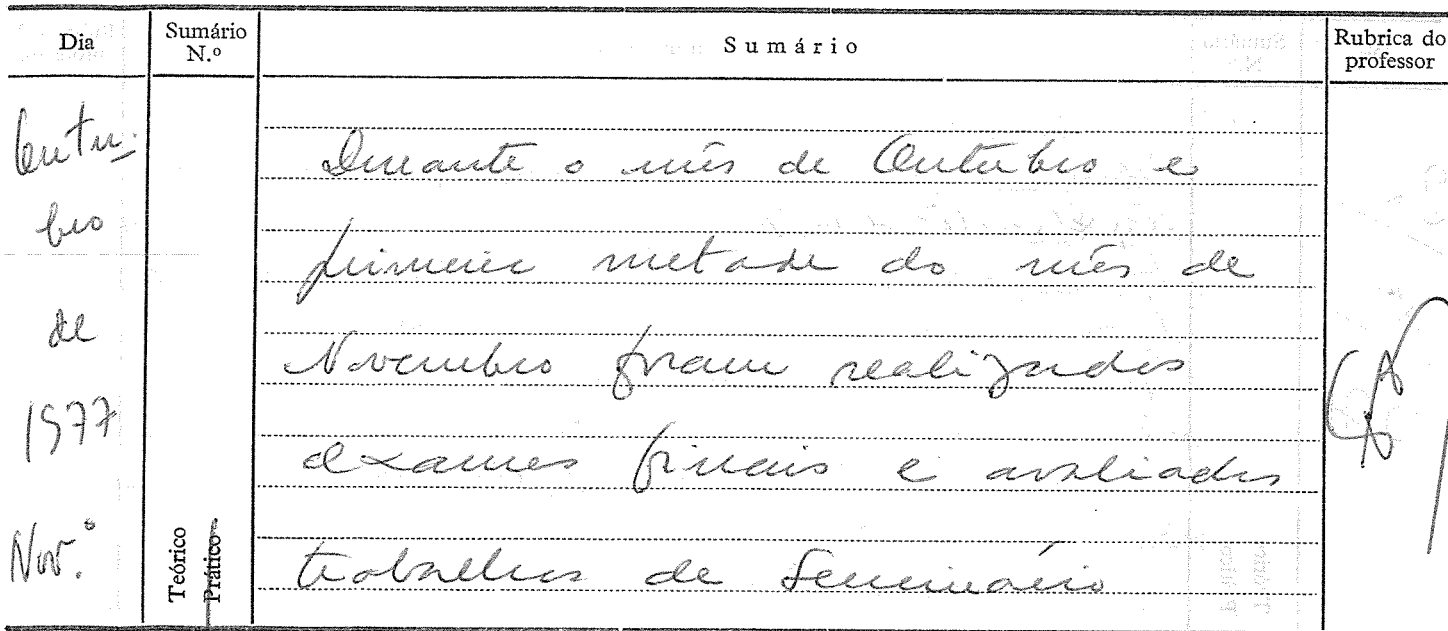 Dia
Sumário N.º
Sumário
Rubrica do professor
Outu-
bro
de
1977
Nov.º
Teórico
Prático
Durante o mês de Outubro e
primeira metade do mês de
Novembro foram realizados
exames finais e avaliados
trabalhos de Seminário